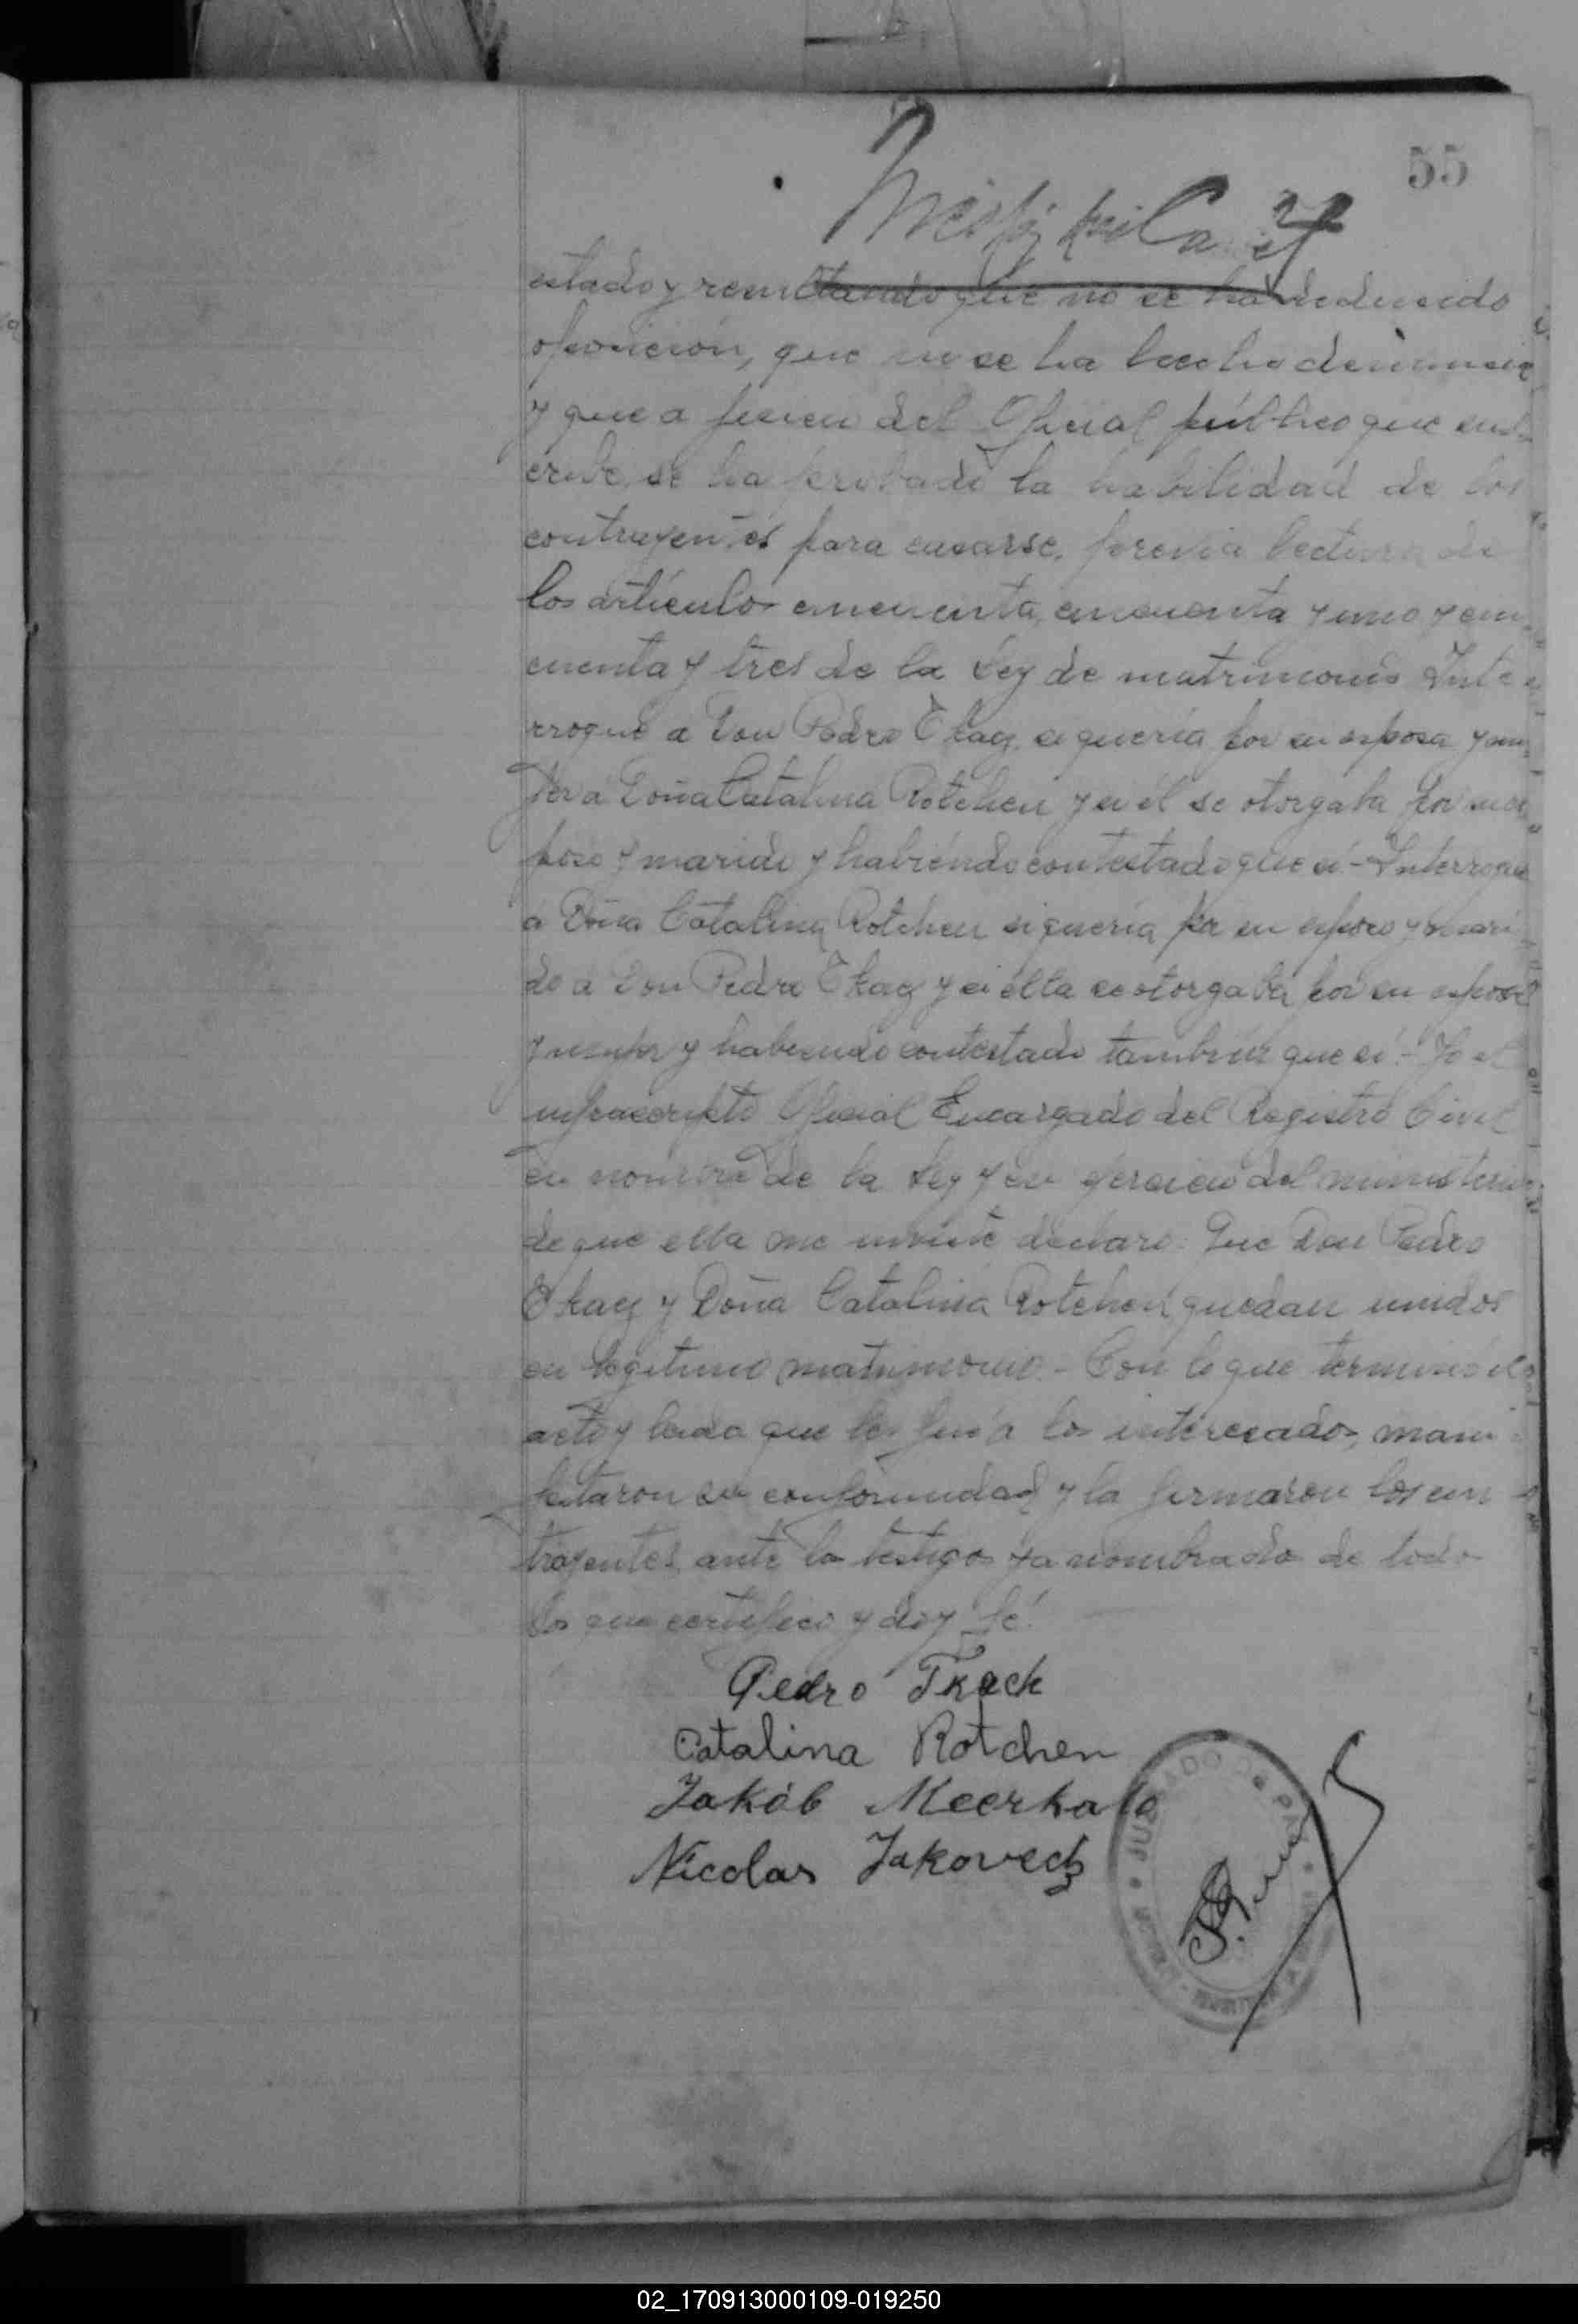 55
estado y resultando que no se ha deducido
oposición, que no se ha hecho denuncia
y que a juicio del Oficial público que sus-
cribe, se ha probado la habilidad de los
contrayentes para casarse, previa lectura de
los artículos cincuenta, cincuenta y uno y cin-
cuenta y tres de la Ley de matrimonio Inte-
rrogué a Don Pedro Tkacz si quería por su esposa y mu-
jer a Doña Catalina Rotchen y si él se otorgaba por su es-
poso y marido y habiendo contestado que sí.- Interrogué
a Doña Catalina Rotchen si quería por su esposo y mari-
do a Don Pedro Tkacz y si ella se otorgaba por su esposa
y mujer y habiendo contestado también que sí.- Yo el
infrascripto Oficial Encargado del Registro Civil
en nombre de la Ley y en ejercicio del ministerio
de que ella me inviste declaro: Que Don Pedro
Tkacz y Doña Catalina Rotchen quedan unidos
en legítimo matrimonio.- Con lo que terminó el
acto y leída que les fué a los interesados, mani-
festaron su conformidad y la firmaron los con-
trayentes ante los testigos ya nombrados de todo
lo que certifico y doy fé.
Pedro Tkach
Catalina Rotchen
Jakób Meerhalo
Nicolas Jakovecz
JUZGADO De PAZ
02_170913000109-019250